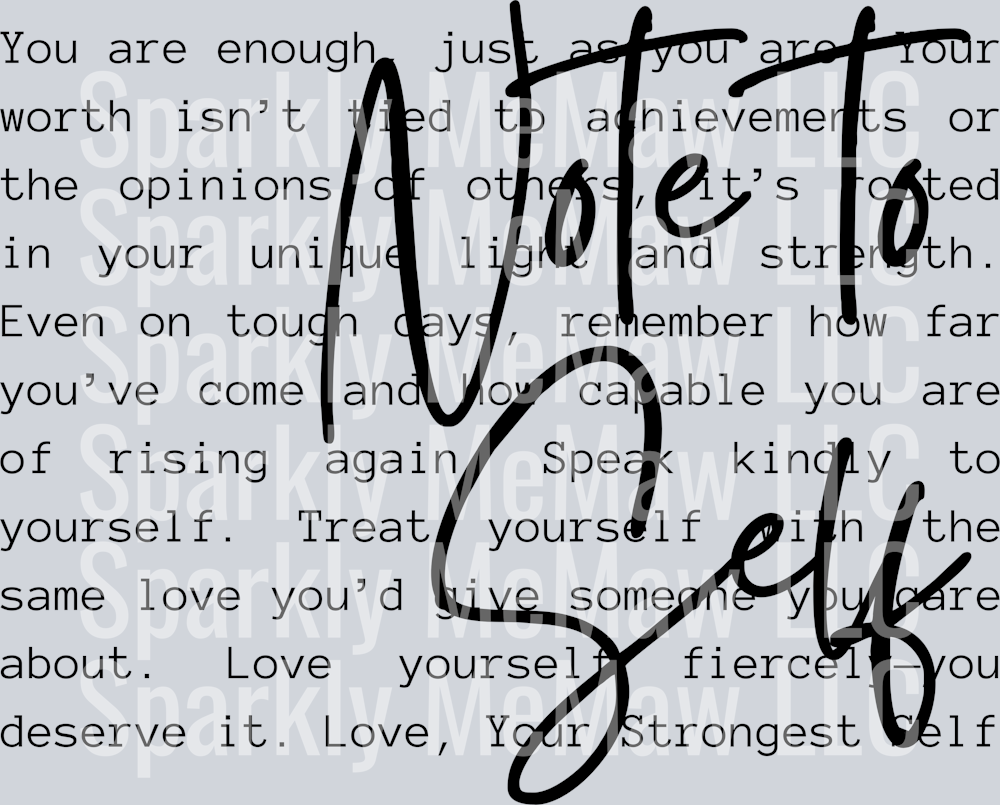 You are enough, just as you are. Your
worth isn’t tied to achievements or
the opinions of others, it’s rooted
in your unique light and strength.
Even on tough days, remember how far
you’ve come and how capable you are
of rising again. Speak kindly to
yourself. Treat yourself with the
same love you’d give someone you care
about. Love yourself fiercely—you
deserve it. Love, Your Strongest Self
Note To
Self
Sparkly MeMaw LLC
Sparkly MeMaw LLC
Sparkly MeMaw LLC
Sparkly MeMaw LLC
Sparkly MeMaw LLC
Sparkly MeMaw LLC